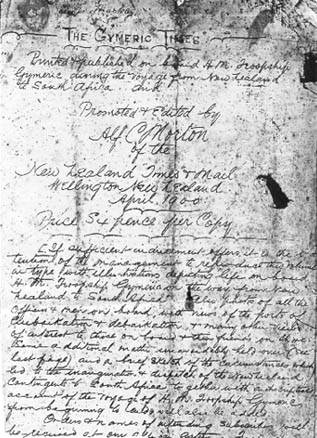 THE GYMERIC TIMES
Printed & published on board H.M. Troopship
Gymeric during the voyage from New Zealand
to South Africa and
Promoted & Edited by
Alf. C. Morton
of the
New Zealand Times & Mail
Wellington New Zealand.
April, 1900
Price Six pence per Copy
If sufficient inducement offers it is the in
tention of the management to reproduce this volume
in type with illustrations depicting life on board
H.M. Troopship Gymeric on the way from New
Zealand to South Africa also photos of all the
Officers & men on board, with views of the port of
embarkation & debarkation, & many other views
of interest to those on board & their friends on shore
Some additional matter unavoidably held over (see
last page) and a brief sketch of the circumstances which
led to the inauguration & despatch of the various
Contingents to South Africa together with a descriptive
account of the voyage of H.M. Troopship Gymeric
from beginning to end will also be added.
Orders & names of intending subscribers will
be received at our office